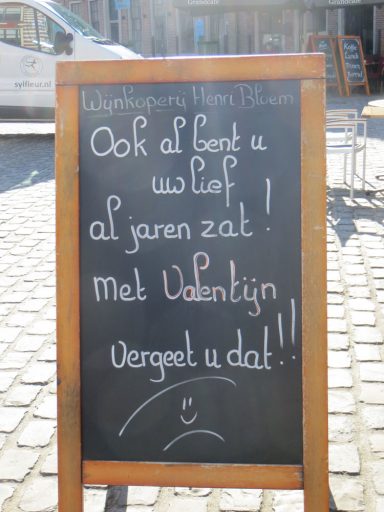 Grandcafé
sylfleur.nl
Wijnkoperij Henri Bloem
Ook al bent u
uw lief
al jaren zat!
met Valentijn
vergeet u dat!!
Koffie
Lunch
Diner
Borrel